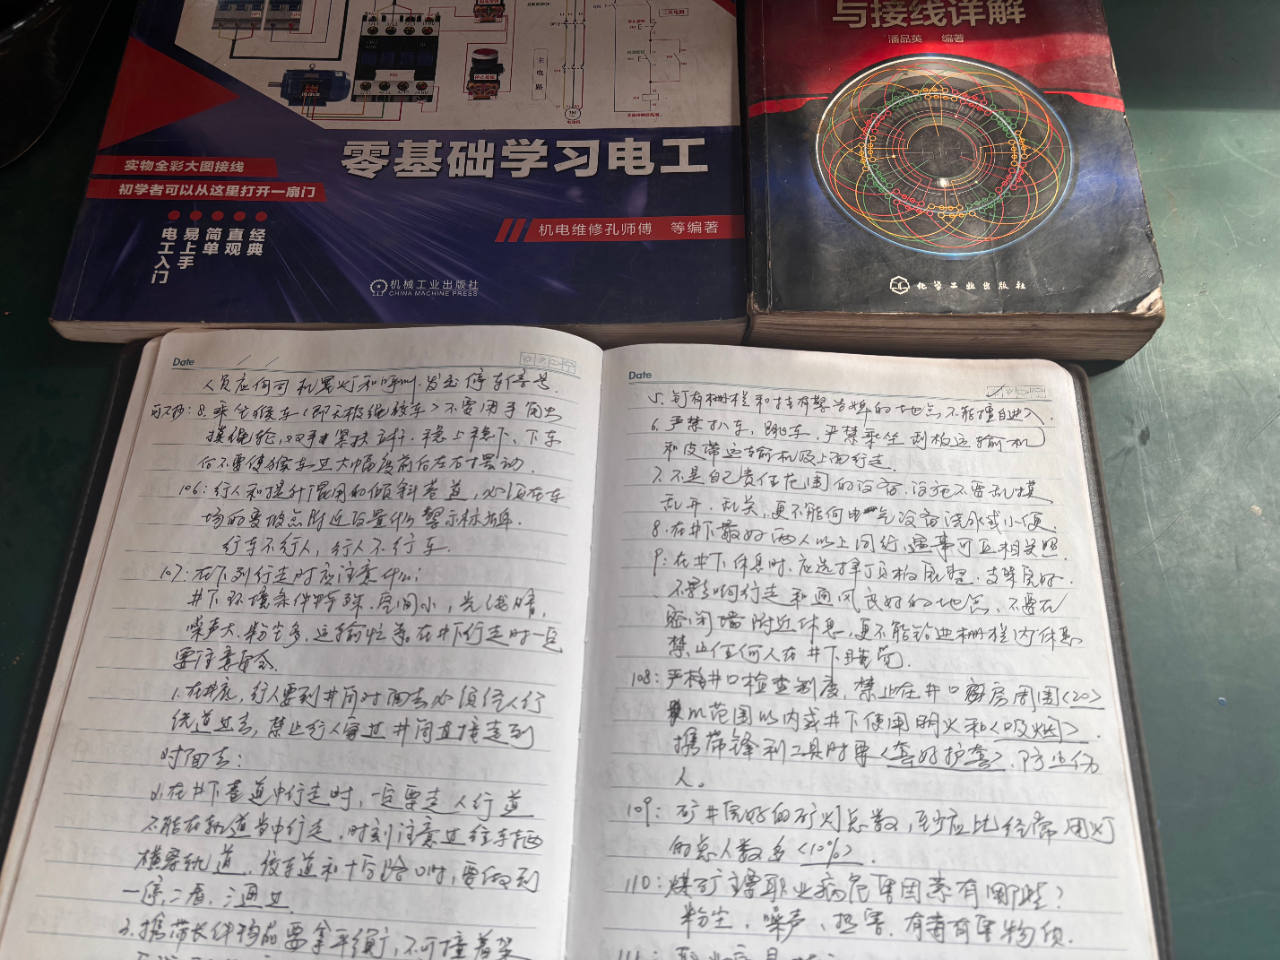 零基础学习电工
实物全彩大图接线
初学者可以从这里打开一扇门
经典
直观
简单
易上手
电工入门
机电维修孔师傅 等编著
机械工业出版社
CHINA MACHINE PRESS
与接线详解
潘品英 编著
化学工业出版社
Date
人员应向司机晃灯和呼叫,发出停车信号
8.乘坐猴车(即无极绳绞车)不要用手向出
摸绳轮,双手紧扶立杆,稳上稳下,下车
后不要使猴车过大幅度前后左右摆动.
106:行人和提升混用的倾斜巷道,必须在车
场的变坡点附近设置什么警示标志牌.
行车不行人,行人不行车.
107:在下列行走时应注意什么:
井下环境条件特殊,空间小,光线暗,
噪声大,粉尘多,运输忙等,在井下行走时一定
要注意安全.
1.在井底,行人要到井筒对面去必须经人行
绕道过去,禁止行人穿过井筒直接走到
对面去:
2.在井下巷道中行走时,一定要走人行道
不能在轨道当中行走,时刻注意过往车辆
横穿轨道,绞车道和十字路口时,要做到
一停,二看,三通过
3.携带长件物品要拿平衡,不可撞着架
Date
5.钉有栅栏和挂有警告牌的地点,不能擅自进入
6.严禁扒车,跳车,严禁乘坐刮板运输机
和皮带运输机及上面行走.
7.不是自己责任范围的设备,设施不要乱摸
乱开,乱关,更不能向电气设备洒水或小便.
8.在井下最好两人以上同行,遇事可互相关照.
9:在井下休息时,应选择顶板完整,支架良好.
不影响行走和通风良好的地点,不要在
密闭墙附近休息,更不能钻进栅栏内休息
禁止任何人在井下睡觉.
108:严格井口检查制度,禁止在井口房周围<20>
米范围以内或井下使用明火和<吸烟>.
携带锋利工具时要<套好护套>,防止伤
人。
109:矿井完好的矿灯总数,至少应比经常用灯
的总人数多<10%>.
110:煤矿主要职业病危害因素有哪些?
粉尘,噪声,热害,有毒有害物质.